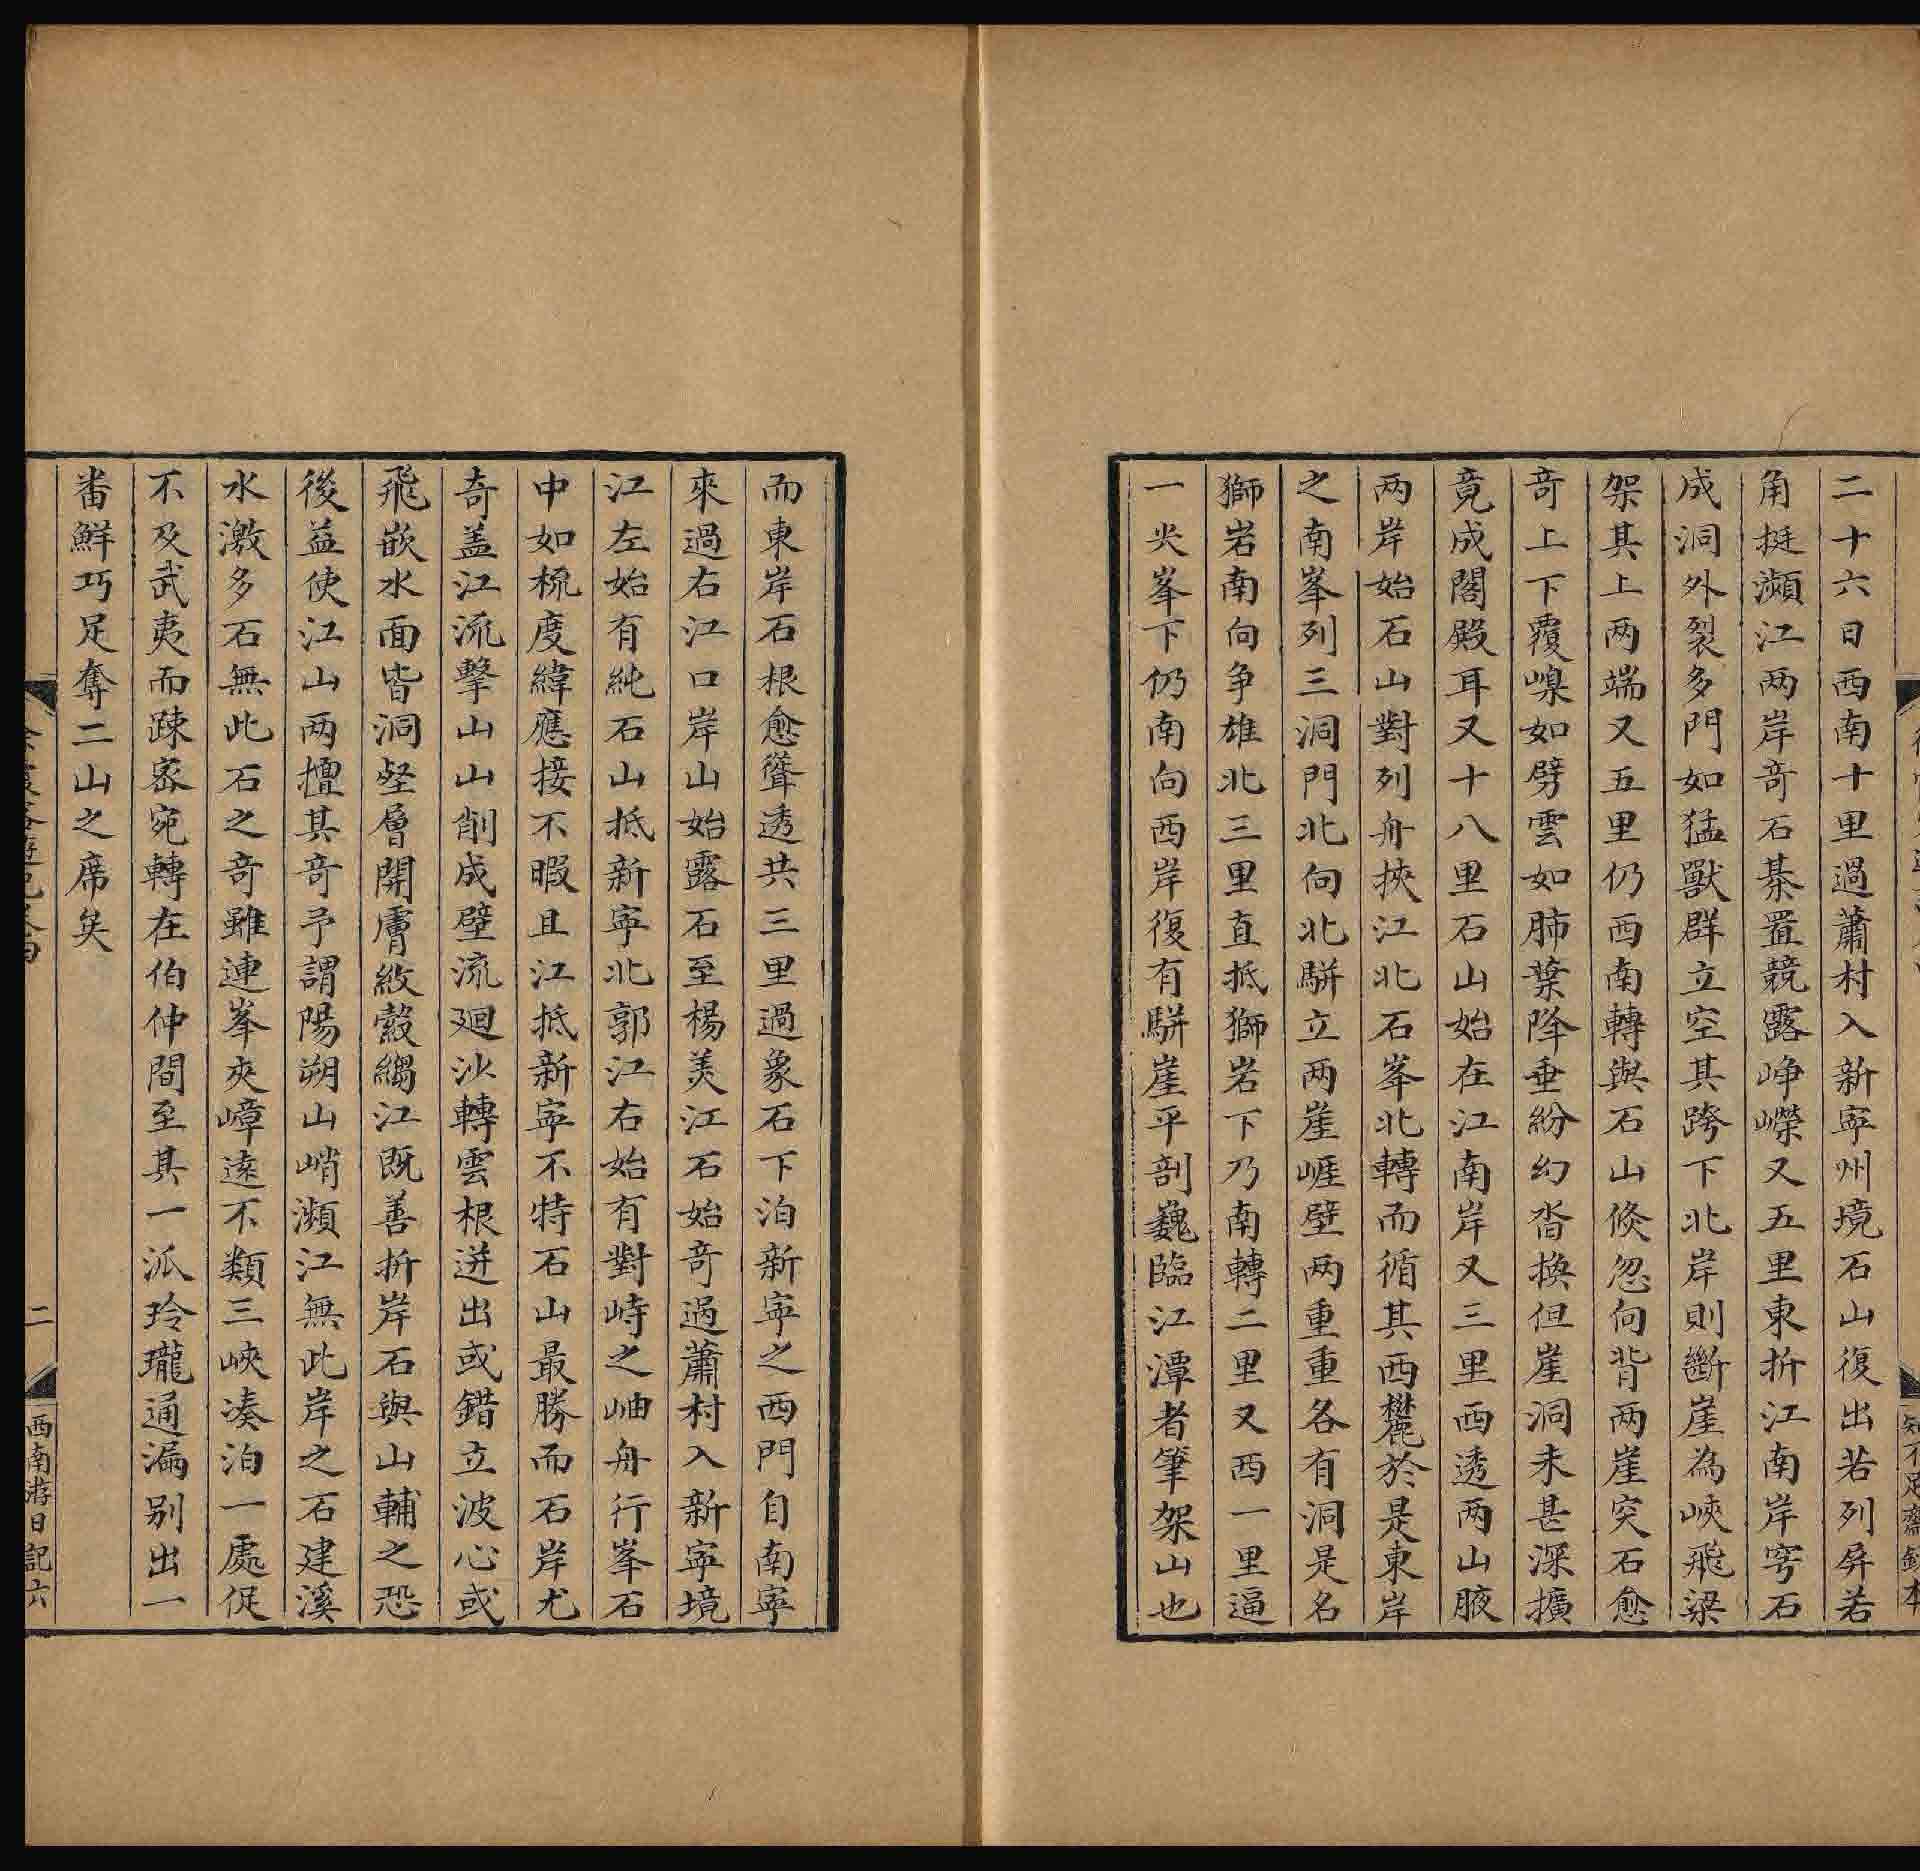 知不足齋鈔本
二十六日西南十里過蕭村入新寧州境石山復出若列屏若
角挺瀕江两岸奇石棊置競露崢嶸又五里東折江南岸穹石
成洞外裂多門如猛獸群立空其跨下北岸則斷崖為峽飛梁
架其上两端又五里仍西南轉與石山倐忽向背两崖突石愈
竒上下覆嵲如劈雲如肺葉降垂紛幻沓換但崖洞未甚深擴
竟成閣殿耳又十八里石山始在江南岸又三里西透两山腋
两岸始石山對列舟挾江北石峯北轉而循其西麓於是東岸
之南峯列三洞門北向北駢立两崖崕壁两重重各有洞是名
獅岩南向争雄北三里直抵獅岩下乃南轉二里又西一里逼
一尖峯下仍南向西岸復有駢崖平剖巍臨江潭者筆架山也
而東岸石根愈聳透共三里過象石下泊新寧之西門自南寧
來過右江口岸山始露石至楊美江石始奇過蕭村入新寧境
江左始有純石山抵新寧北郭江右始有對峙之岫舟行峯石
中如梳度緯應接不暇且江抵新寧不特石山最勝而石岸尤
奇盖江流擊山山削成壁流廻沙轉雲根迸出或錯立波心或
飛嵌水面皆洞壑層開膚紋縠縐江既善折岸石與山輔之恐
後益使江山两擅其奇予謂陽朔山峭瀕江無此岸之石建溪
水激多石無此石之奇雖連峯夾嶂遠不類三峽凑泊一處促
不及武夷而踈宻宛轉在伯仲間至其一派玲瓏通漏别出一
畨鮮巧足奪二山之席矣
二
西南游日記六